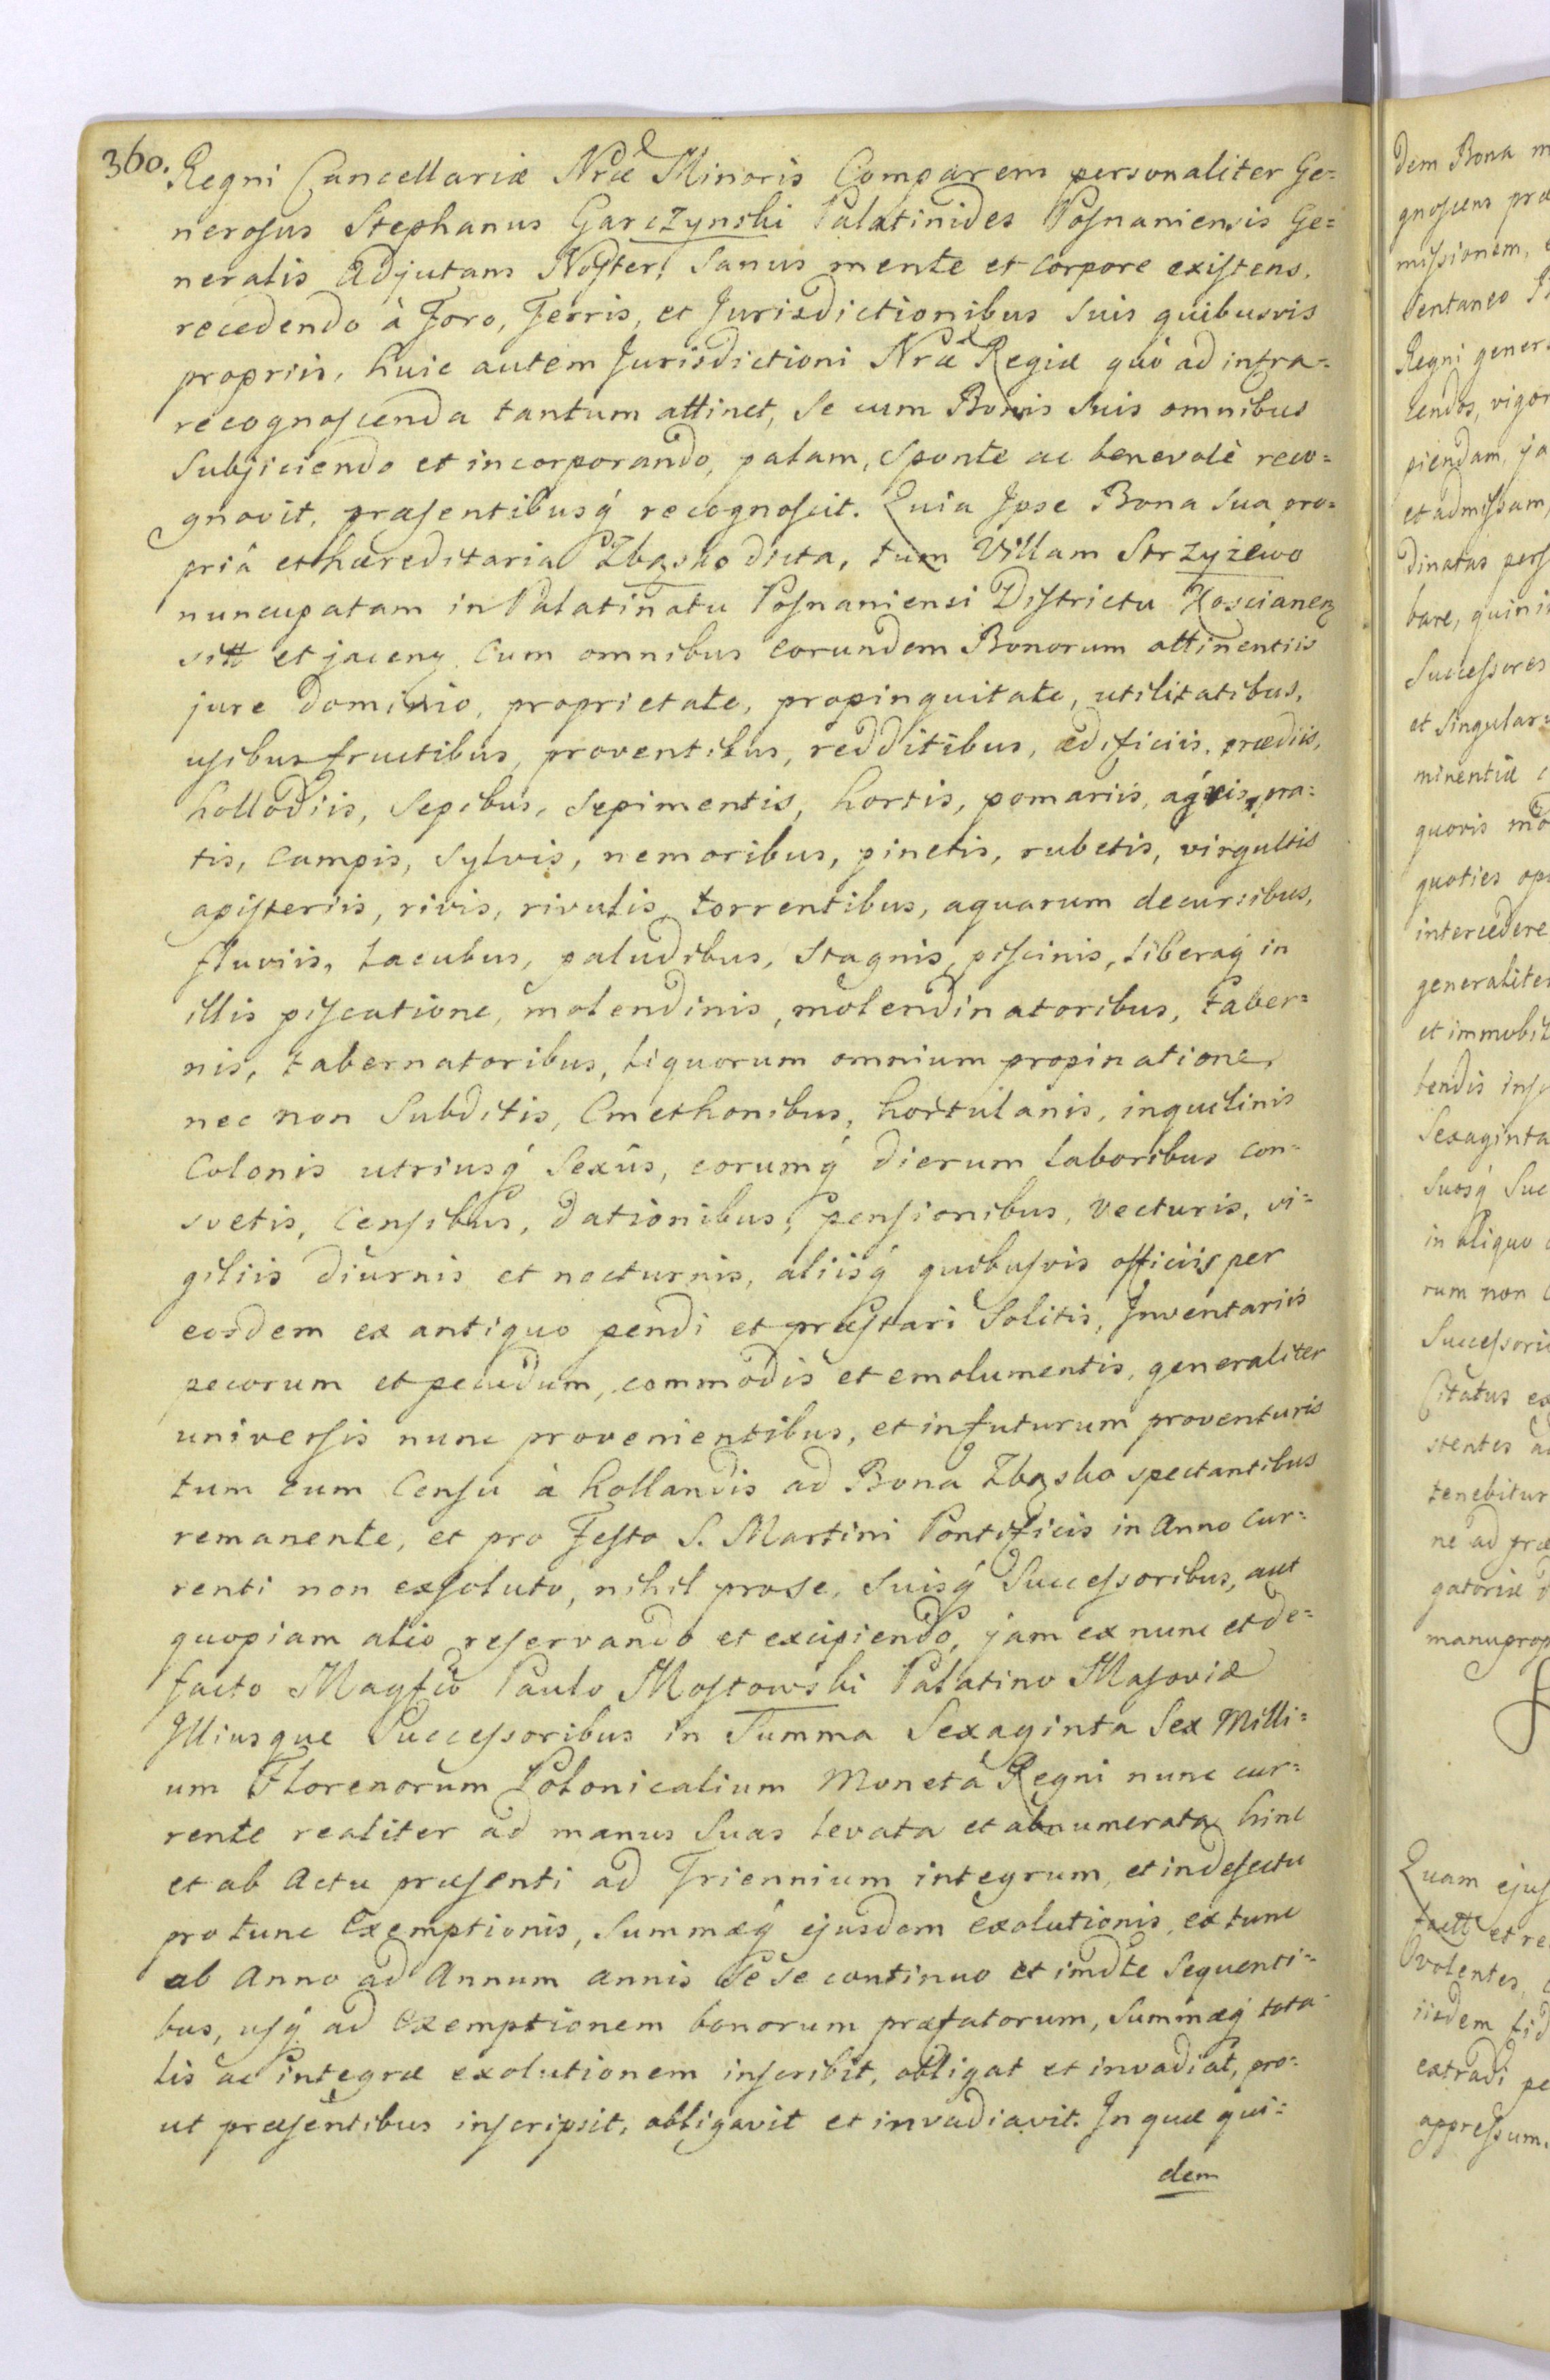 360.
Regni Cancellariæ Nræ Minoris Comparens personaliter Ge=
nerosus Stephanus Garczynski Palatinides Posnaniensis Ge=
neralis Adjutans Noster, Sanus mente et corpore existens,
recedendo à Foro, Terris, et Jurisdictionibus Suis quibusvis
propriis, huic autem Jurisdictioni Nræ Regiæ quò ad infra=
recognoscenda tantum attinet, Se cum Bonis Suis omnibus
Subjiciendo et incorporando, palam, Sponte ac benevolè reco=
gnovit, præsentibusq́ recognoscit. Quia Ipse Bona Sua pro=
pria et hæreditaria Zbąsko dicta, tum Villam Strzyżewo
nuncupatam in Palatinatu Posnaniensi Districtu Koscianeñ
sitt et jaceñ cum omnibus eorundem Bonorum attinentiis
jure dominio, proprietate, propinquitate, utilitatibus,
usibusfructibus, proventibus, redditibus, ædificiis, prædiis,
hollodiis, Sepibus, Sepimentis, hortis, pomariis, agris, pra=
tis, Campis, Sylvis, nemoribus, pinetis, rubetis, virgultis
apisteriis, rivis, rivulis, torrentibus, aquarum decursibus,
fluviis, Lacubus, paludibus, Stagnis, piscinis, liberaq́ in
illis piscatione, molendinis, molendinatoribus, taber=
nis, tabernatoribus, liquorum omnium propinatione,
nec non Subditis, Cmethonibus, hortulanis, inquilinis
Colonis utriusq́ Sexûs, eorumq́ dierum laboribus con=
svetis, Censibus, dationibus, pensionibus, vecturis, vi=
giliis diurnis et nocturnis, aliisq́ quibusvis officiis per
eosdem ex antiquo pendi et præstari Solitis, Inventariis
pecorum et pecudum, commodis et emolumentis, generaliter
universis nunc provenientibus, et in futurum proventuris
tum cum Censu à hollandis ad Bona Zbąsko spectantibus
remanente, et pro Festo S. Martini Pontificis in Anno Cur=
renti non exsoluto, nihil pro se, Suisq́ Successoribus, aut
quopiam alio reservando et excipiendo, jam ex nunc et de=
facto Magfco Paulo Mostowski Palatino Masoviæ
Illiusque Successoribus in Summa Sexaginta Sex Milli=
um Florenorum Polonicalium Monetâ Regni nunc cur=
rente realiter ad manus Suas levata et abnumerata hinc
et ab Actu præsenti ad Triennium integrum, et in defectu
pro tunc Exemptionis, Summæq́ ejusdem exolutionis, extunc
ab Anno ad Annum annis Se se continuo et imdte Sequenti=
bus, usq́ ad exemptionem bonorum præfatorum, Summæq́ tota=
lis ac integræ exolutionem inscribit, obligat et invadiat, pro=
ut præsentibus inscripsit, obligavit et invadiavit. In quæ qui=
dem
dem Bona
gnoscens
missionem,
tentaneo
Regni
cendos,
piendam,
et admissam,
dinatas
bare, quin
Successores
et Singular=
minentiæ
quovis
quoties
intercedere
generaliter
bendis
Sexaginta
Suosq́
in aliquo
rum non
Citatus
stentes
tenebitur
ne ad
gatoriæ
Quam
et re
volentes,
iisdem
extradi
appressum.